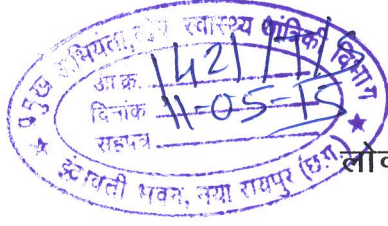 प्रमुख अभियंता, लोक स्वास्थ्य यांत्रिकी विभाग
आ.क्र.
दिनांक 11-05-15
सहपत्र
इंद्रावती भवन, नया रायपुर (छ.ग.)
लोक